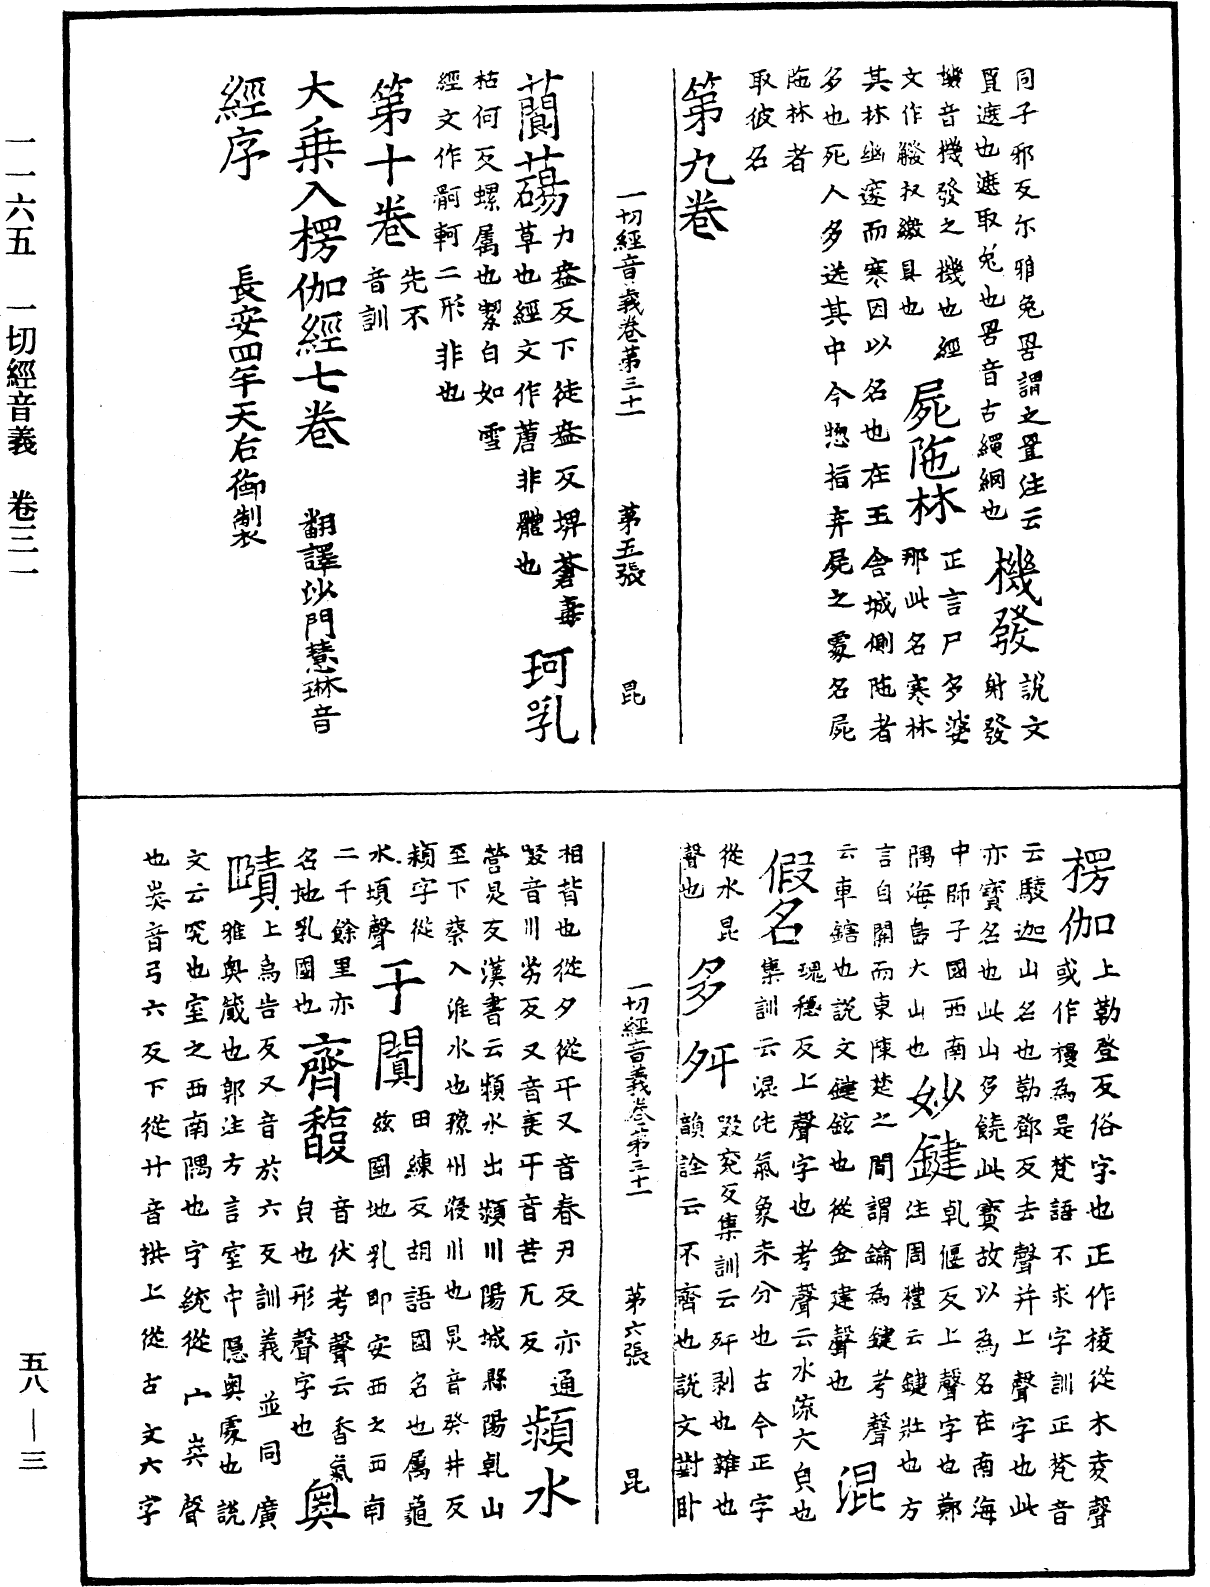 一一六五 一切經音義 卷三一
五八—三
同子邪反尓雅兔罟謂之罝注云
罝遮也遮取兔也罟音古繩網也 機發 說文
機音機發之機也經 正言尸多婆 射發
文作 叔繳具也 屍陁林 那此名寒林
其林幽邃而寒因以名也在王舍城側陁者
多也死人多送其中今惣指弃屍之處名屍
陁林者
取彼名
第九卷
一切經音義卷第三十一 第五張 昆
蘭蕩 力盎反下徒盎反埤蒼毒
草也經文作藘非體也 珂乳
枯何反螺屬也潔白如雪
經文作 軻二形非也
第十卷 先不音訓
大乘入楞伽經七卷 翻譯沙門慧琳音
經序 長安四年天右御製
楞伽 上勒登反俗字也正作棱從木夌聲
或作稜為是梵語不求字訓正梵音
云駿迦山名也勒鄧反去聲并上聲字也此
亦寶名也此山多饒此寶故以為名在南海
中師子國西南 乹偃反上聲字也鄭
隅海島大山也 妙鍵 注周禮云鍵壯也方
言自關而東陳楚之間謂鑰為鍵考聲
云車鎋也說文鍵鉉也從金建聲也 混
假名 瑰穩反上聲字也考聲云水流大㒵也
集訓云混沌氣象未分也古今正字
從水昆聲也 多歹 毀兖反集訓云歼剥也雜也
韻詮云不齊也說文對卧
一切經音義卷第三十一 第六張 昆
相背也從夕從㐄又音春尹反亦通 潁水
毀音川劣反又音㐄音苦瓦反
營炅反漢書云潁水出潁川陽城縣陽乹山
至下蔡入淮水也豫州浸川也炅音癸井反
潁字從水頃聲 于闐 田練反胡語國名也屬龜
茲國地乳即安西之西南
二千餘里亦名地乳國也 齊馥 音伏考聲云香氣
㒵也形聲字也 奥
賾 上烏告反又音於六反訓義並同廣
雅奥藏也郭注方言室中隱奥處也說
文云究也室之西南隅也字統從宀𢍏聲
也𢍏音弓六反下從廾音拱上從古文六字